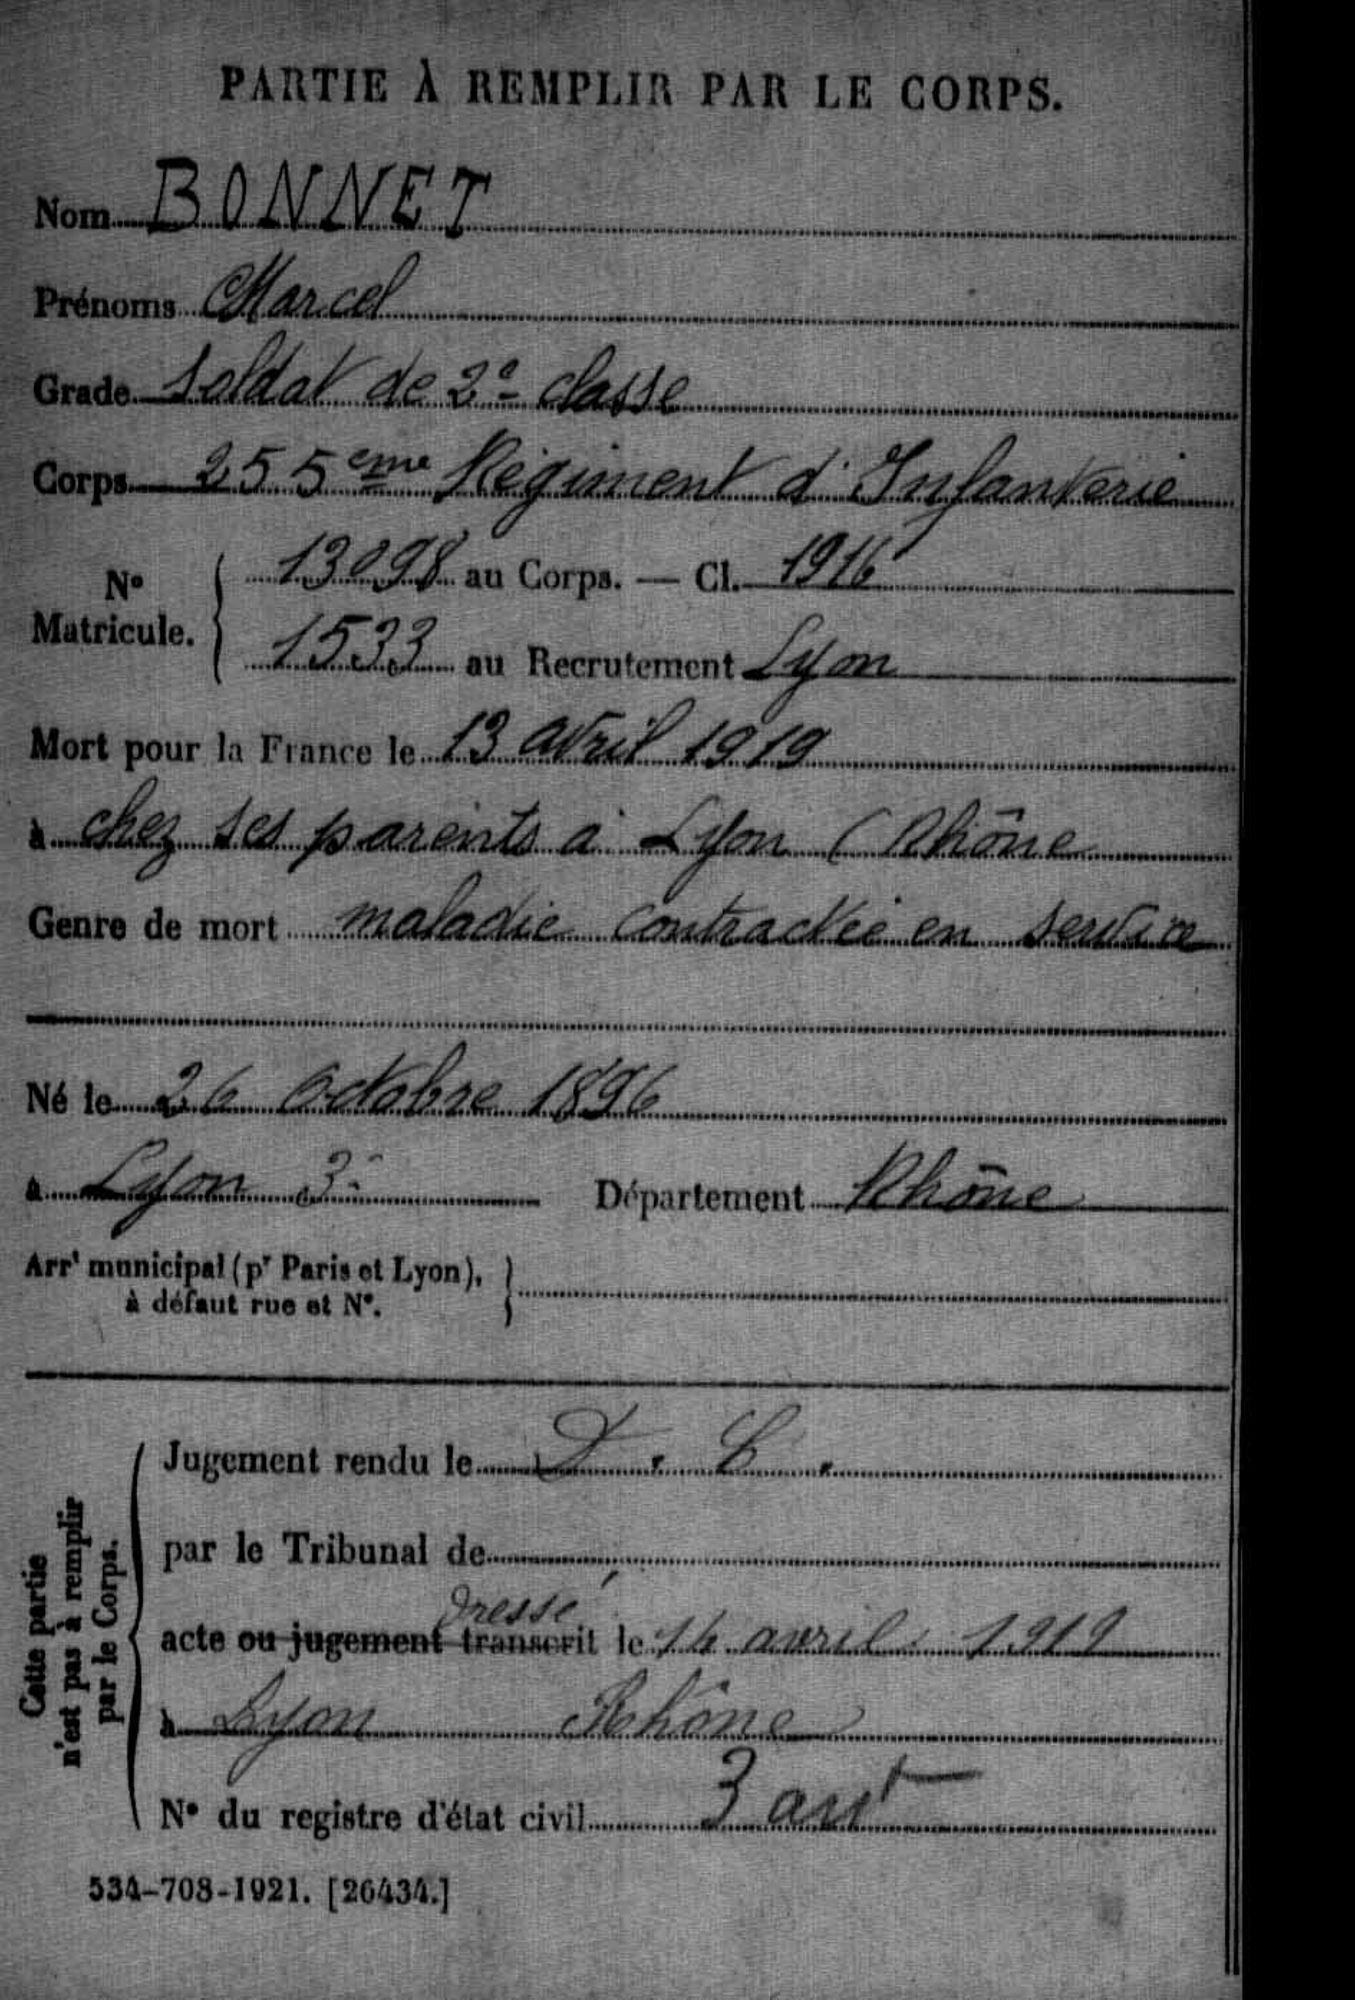 PARTIE À REMPLIR PAR LE CORPS.
Nom BONNET
Prénoms Marcel
Grade Soldat de 2e classe
Corps 255eme Régiment d'Infanterie
No Matricule. 13098 au Corps. — Cl. 1916
1533 au Recrutement Lyon
Mort pour la France le 13 avril 1919
à chez ses parents à Lyon (Rhône
Genre de mort maladie contractée en service
Né le 26 Octobre 1896
à Lyon 3e Département Rhône
Arrt municipal (pr Paris et Lyon),
à défaut rue et No.
Cette partie
n'est pas à remplir
par le Corps.
Jugement rendu le D. C.
par le Tribunal de
dressé
acte ou jugement transcrit le 14 avril 1919
à Lyon Rhône
No du registre d'état civil 3 arrt
534-708-1921. [26434.]